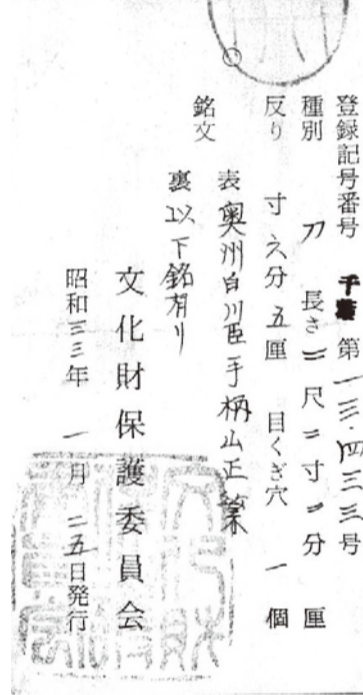 登録記号番号 千葉 第一三・四三三号
種別 刀 長さ 二尺二寸 分 厘
反り 寸六分五厘 目くぎ穴 一個
銘文 表 奥州白川臣手柄山正繁
裏 以下銘有リ
文化財保護委員会
昭和三三年 一月 二五日発行